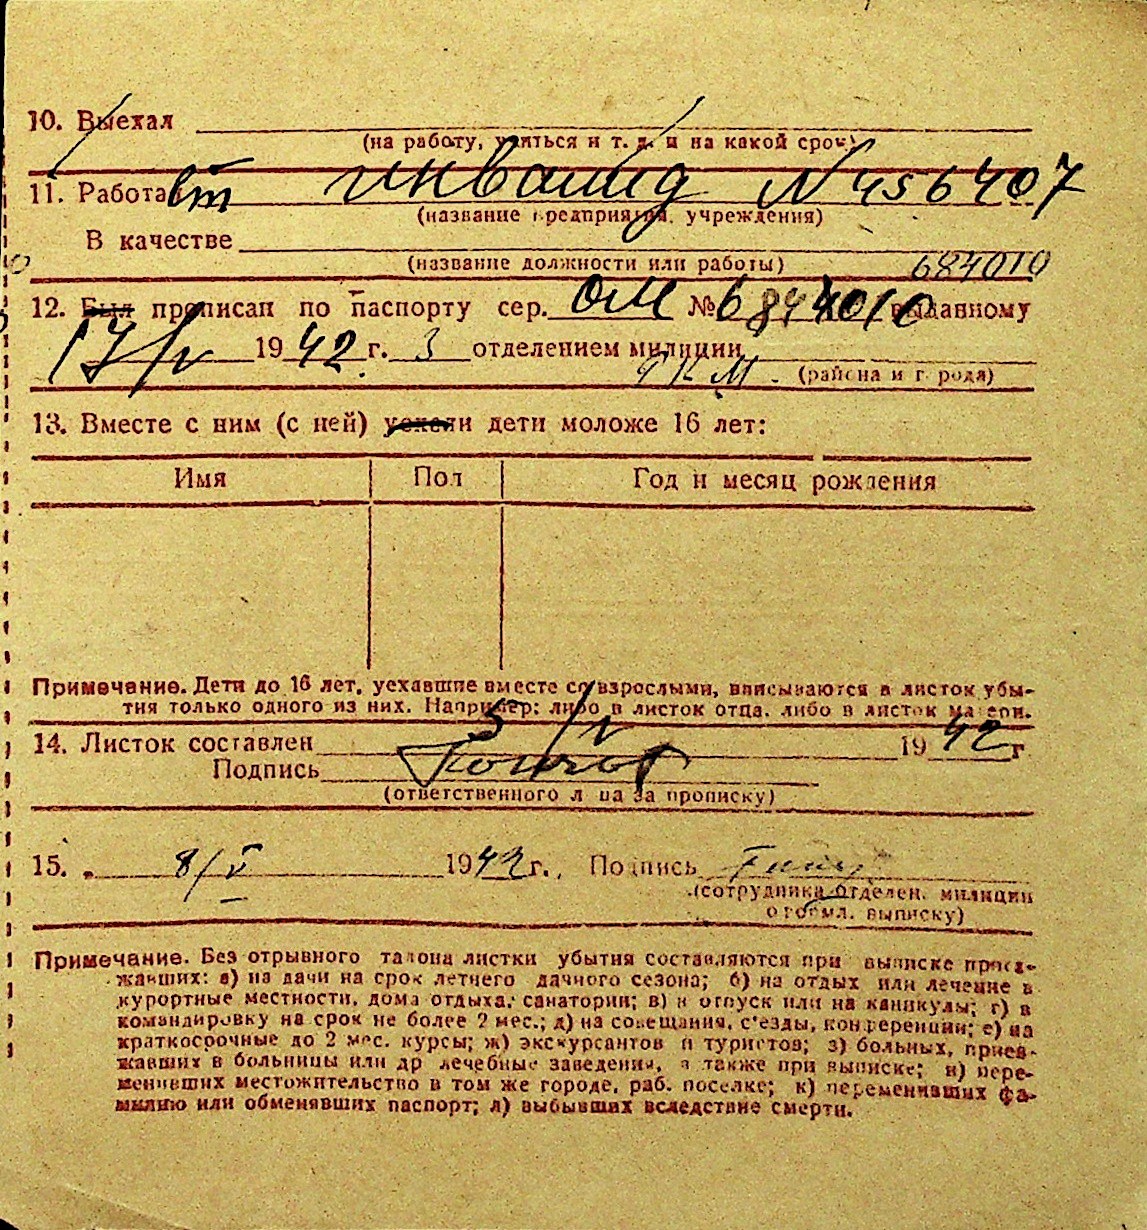 10. Выехал
(на работу, учиться и т. д. и на какой срок)
11. Работает инвалид N 456407
(название предприятия, учреждения)
В качестве
(название должности или работы) 684010
12. Был прописан по паспорту сер. ОМ № выданному
17/V 1942 г. 3 отделением милиции
РКМ. (района и города)
13. Вместе с ним (с ней) уехали дети моложе 16 лет:
Имя Пол Год и месяц рождения
Примечание. Дети до 16 лет, уехавшие вместе со взрослыми, вписываются в листок убы-
тия только одного из них. Например: либо в листок отца, либо в листок матери.
14. Листок составлен 5/V 1942 г
Подпись
(ответственного лица за прописку)
15. „ 8/V 1942 г., Подпись
(сотрудника отделен. милиции
оформл. выписку)
Примечание. Без отрывного талона листки убытия составляются при выписке приез-
жавших: а) на дачи на срок летнего дачного сезона; б) на отдых или лечение в
курортные местности, дома отдыха, санатории; в) в отпуск или на каникулы; г) в
командировку на срок не более 2 мес.; д) на совещания, с'езды, конференции; е) на
краткосрочные до 2 мес. курсы; ж) экскурсантов и туристов; з) больных, приез-
жавших в больницы или др лечебные заведения, а также при выписке; и) пере-
менивших местожительство в том же городе, раб. поселке; к) переменивших фа-
милию или обменявших паспорт; л) выбывших вследствие смерти.